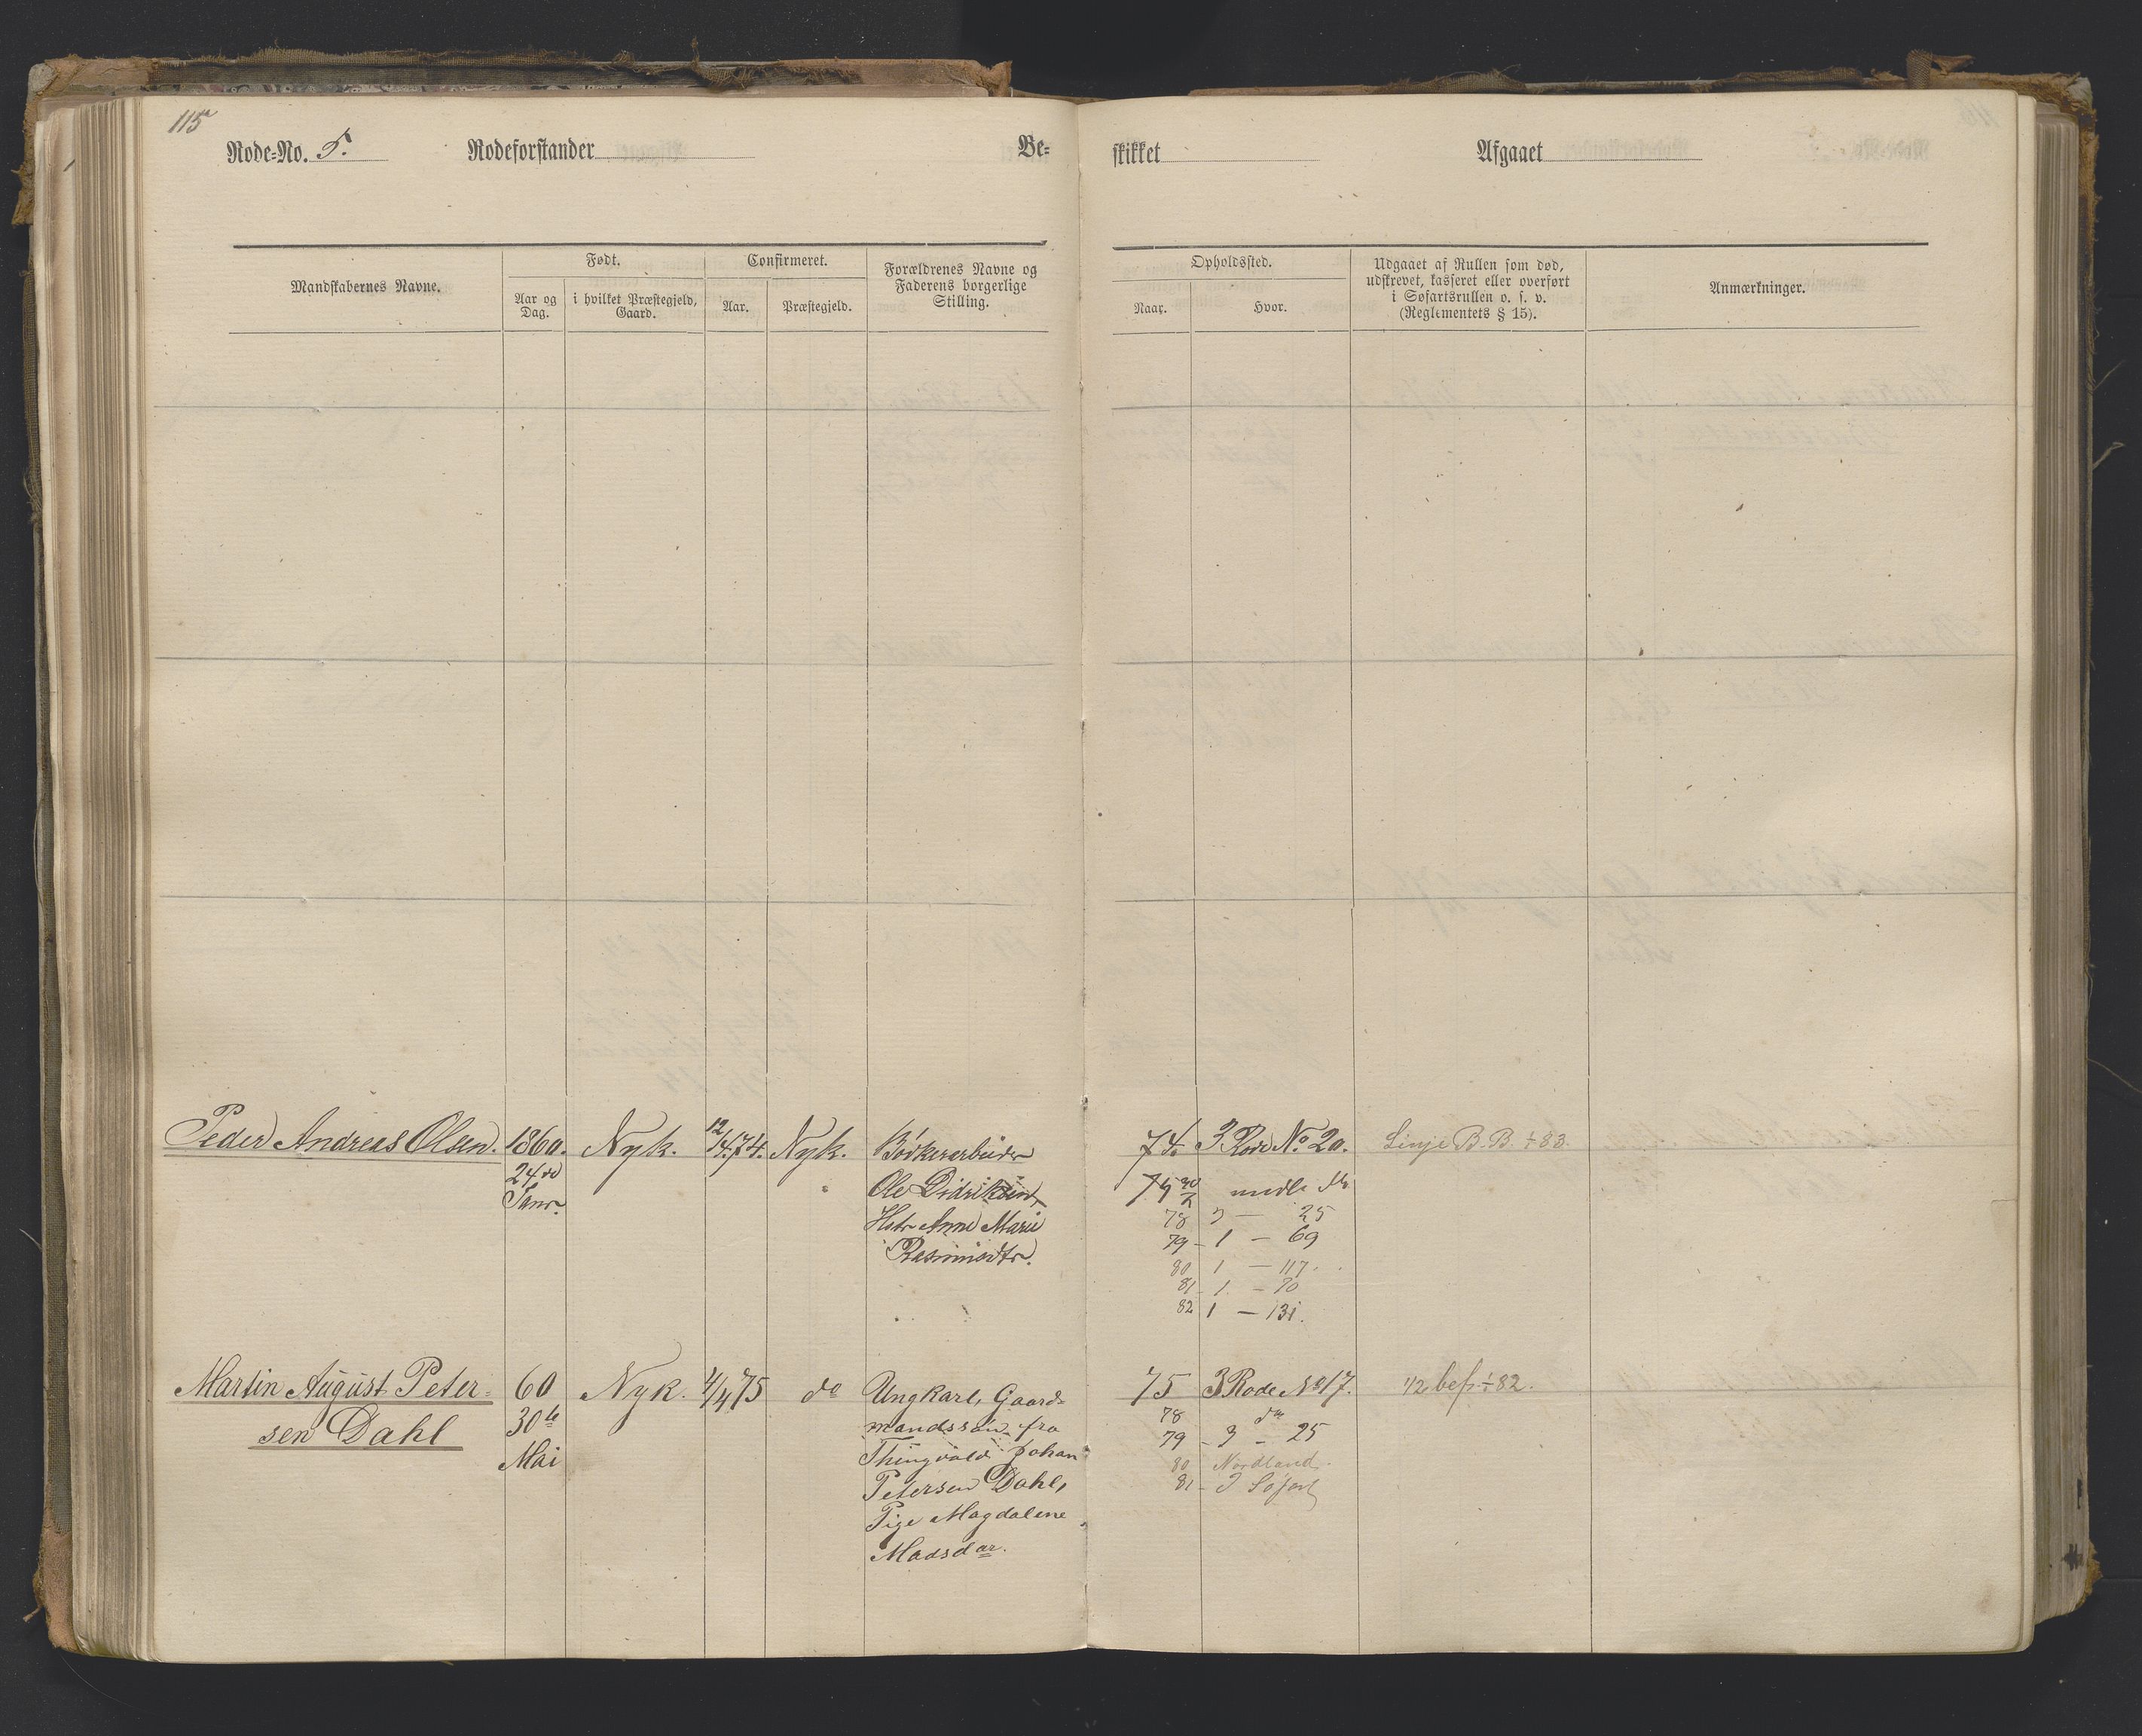 115
Rode=No. 5. Rodeforstander Be=
skikket Afgaaet
Mandskabernes Navne.
Født.
Aar og
Dag.
i hvilket Præstegjeld,
Gaard.
Confirmeret.
Aar.
Præstegjeld.
Forældrenes Navne og
Faderens borgerlige
Stilling.
Opholdssted.
Naar.
Hvor.
Udgaaet af Rullen som død,
udskrevet, kasseret eller overført
i Søfartsrullen o. s. v.
(Reglementets § 15).
Anmærkninger.
Peder Andreas Olsen.
1860.
24de
Janr.
Nyk.
12/4.74.
Nyk.
Bødkerarbeider
Ole Didriksen,
Hstr Anne Marie
Rasmusdtr.
74. 3 Rode No. 20.
75
78 3 — 25
79 – 1 — 69
80 1 — 117.
81 1 – 70
82 1 — 131.
Linje B. B. ÷ 83.
Martin August Peter=
sen Dahl
60
30te
Mai
Nyk.
4/4 75
do
Ungkarl, Gaard=
mandssøn fra
Thingvold Johan
Petersen Dahl,
Pige Magdalene
Madsdar.
75 3 Rode No 17.
78 do
79 – 3 – 25
80 Nordland.
81 – I Søfart
1/2 bef. ÷ 82.